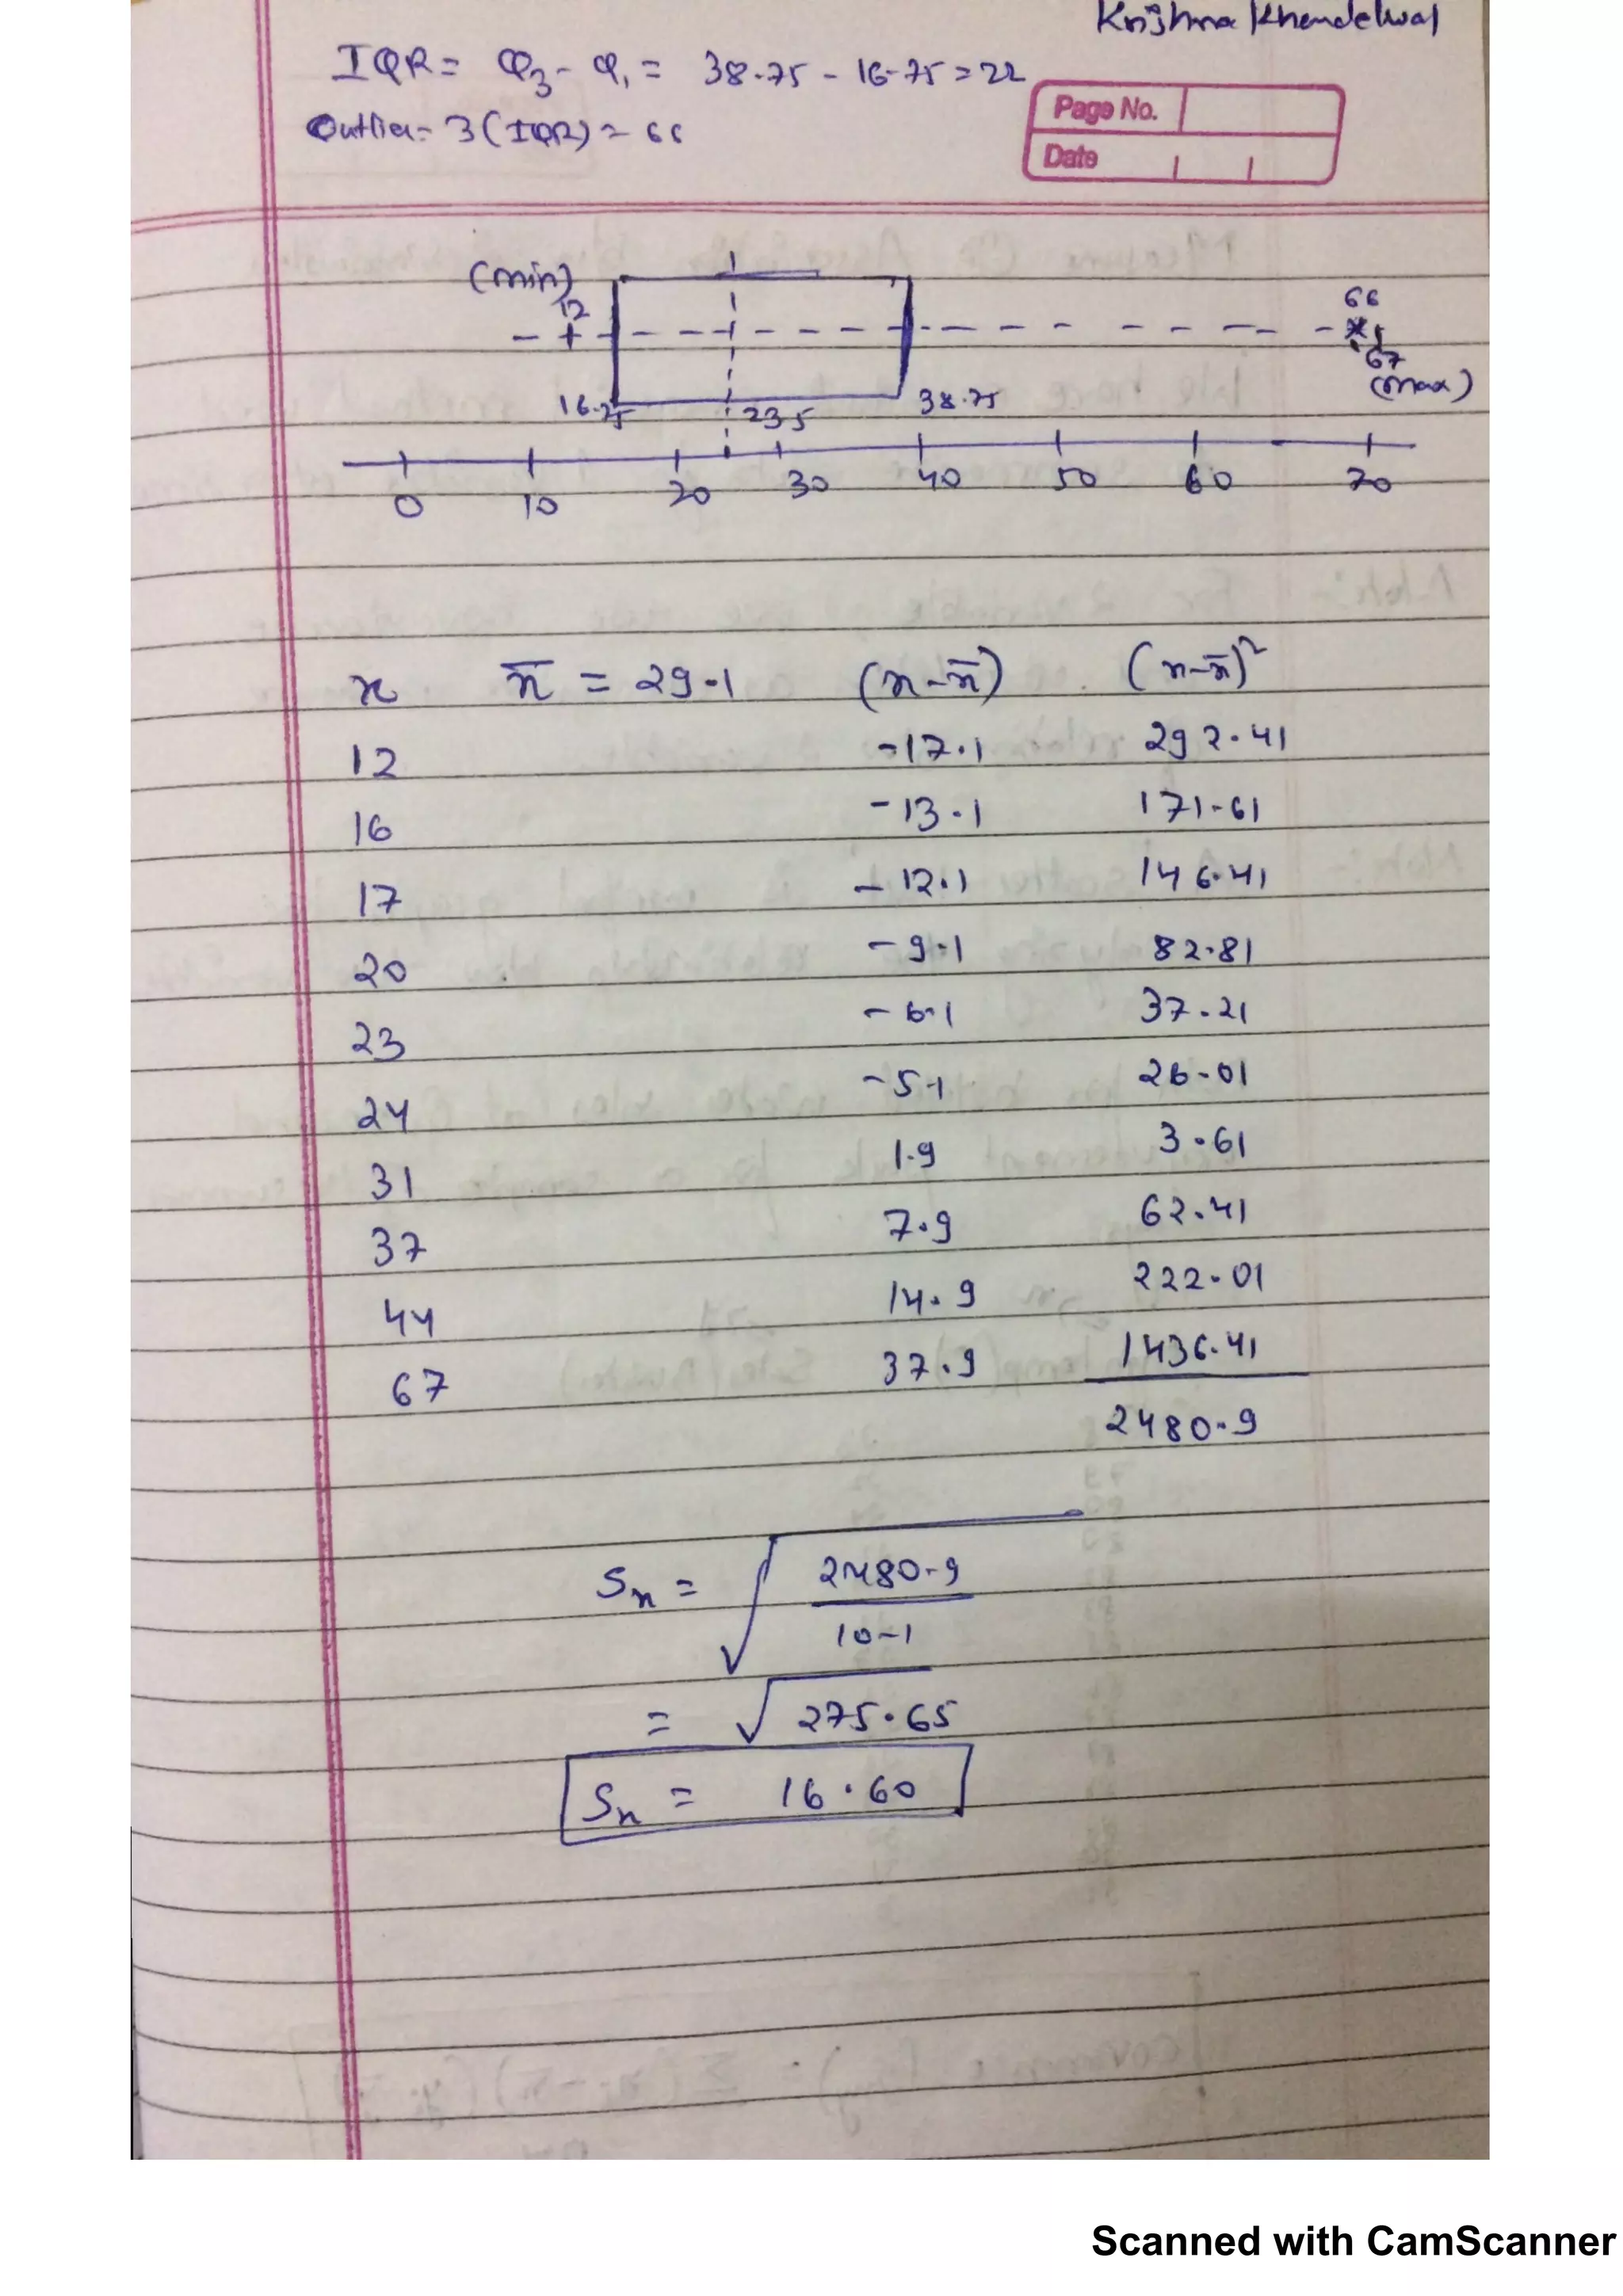 Krishna Khandelwal
IQR = Q3 - Q1 = 38.75 - 16.75 = 22
Outlier = 3 (IQR) = 66
Page No.
Date
(min)
12
66
67
(max)
16.75
23.5
38.75
0 10 20 30 40 50 60 70
x x̄ = 29.1 (x-x̄) (x-x̄)²
12 -17.1 292.41
16 -13.1 171.61
17 -12.1 146.41
20 -9.1 82.81
23 -6.1 37.21
24 -5.1 26.01
31 1.9 3.61
37 7.9 62.41
44 14.9 222.01
67 37.9 1436.41
2480.9
Sx = √ 2480.9
10-1
= √ 275.65
Sx = 16.60
Scanned with CamScanner